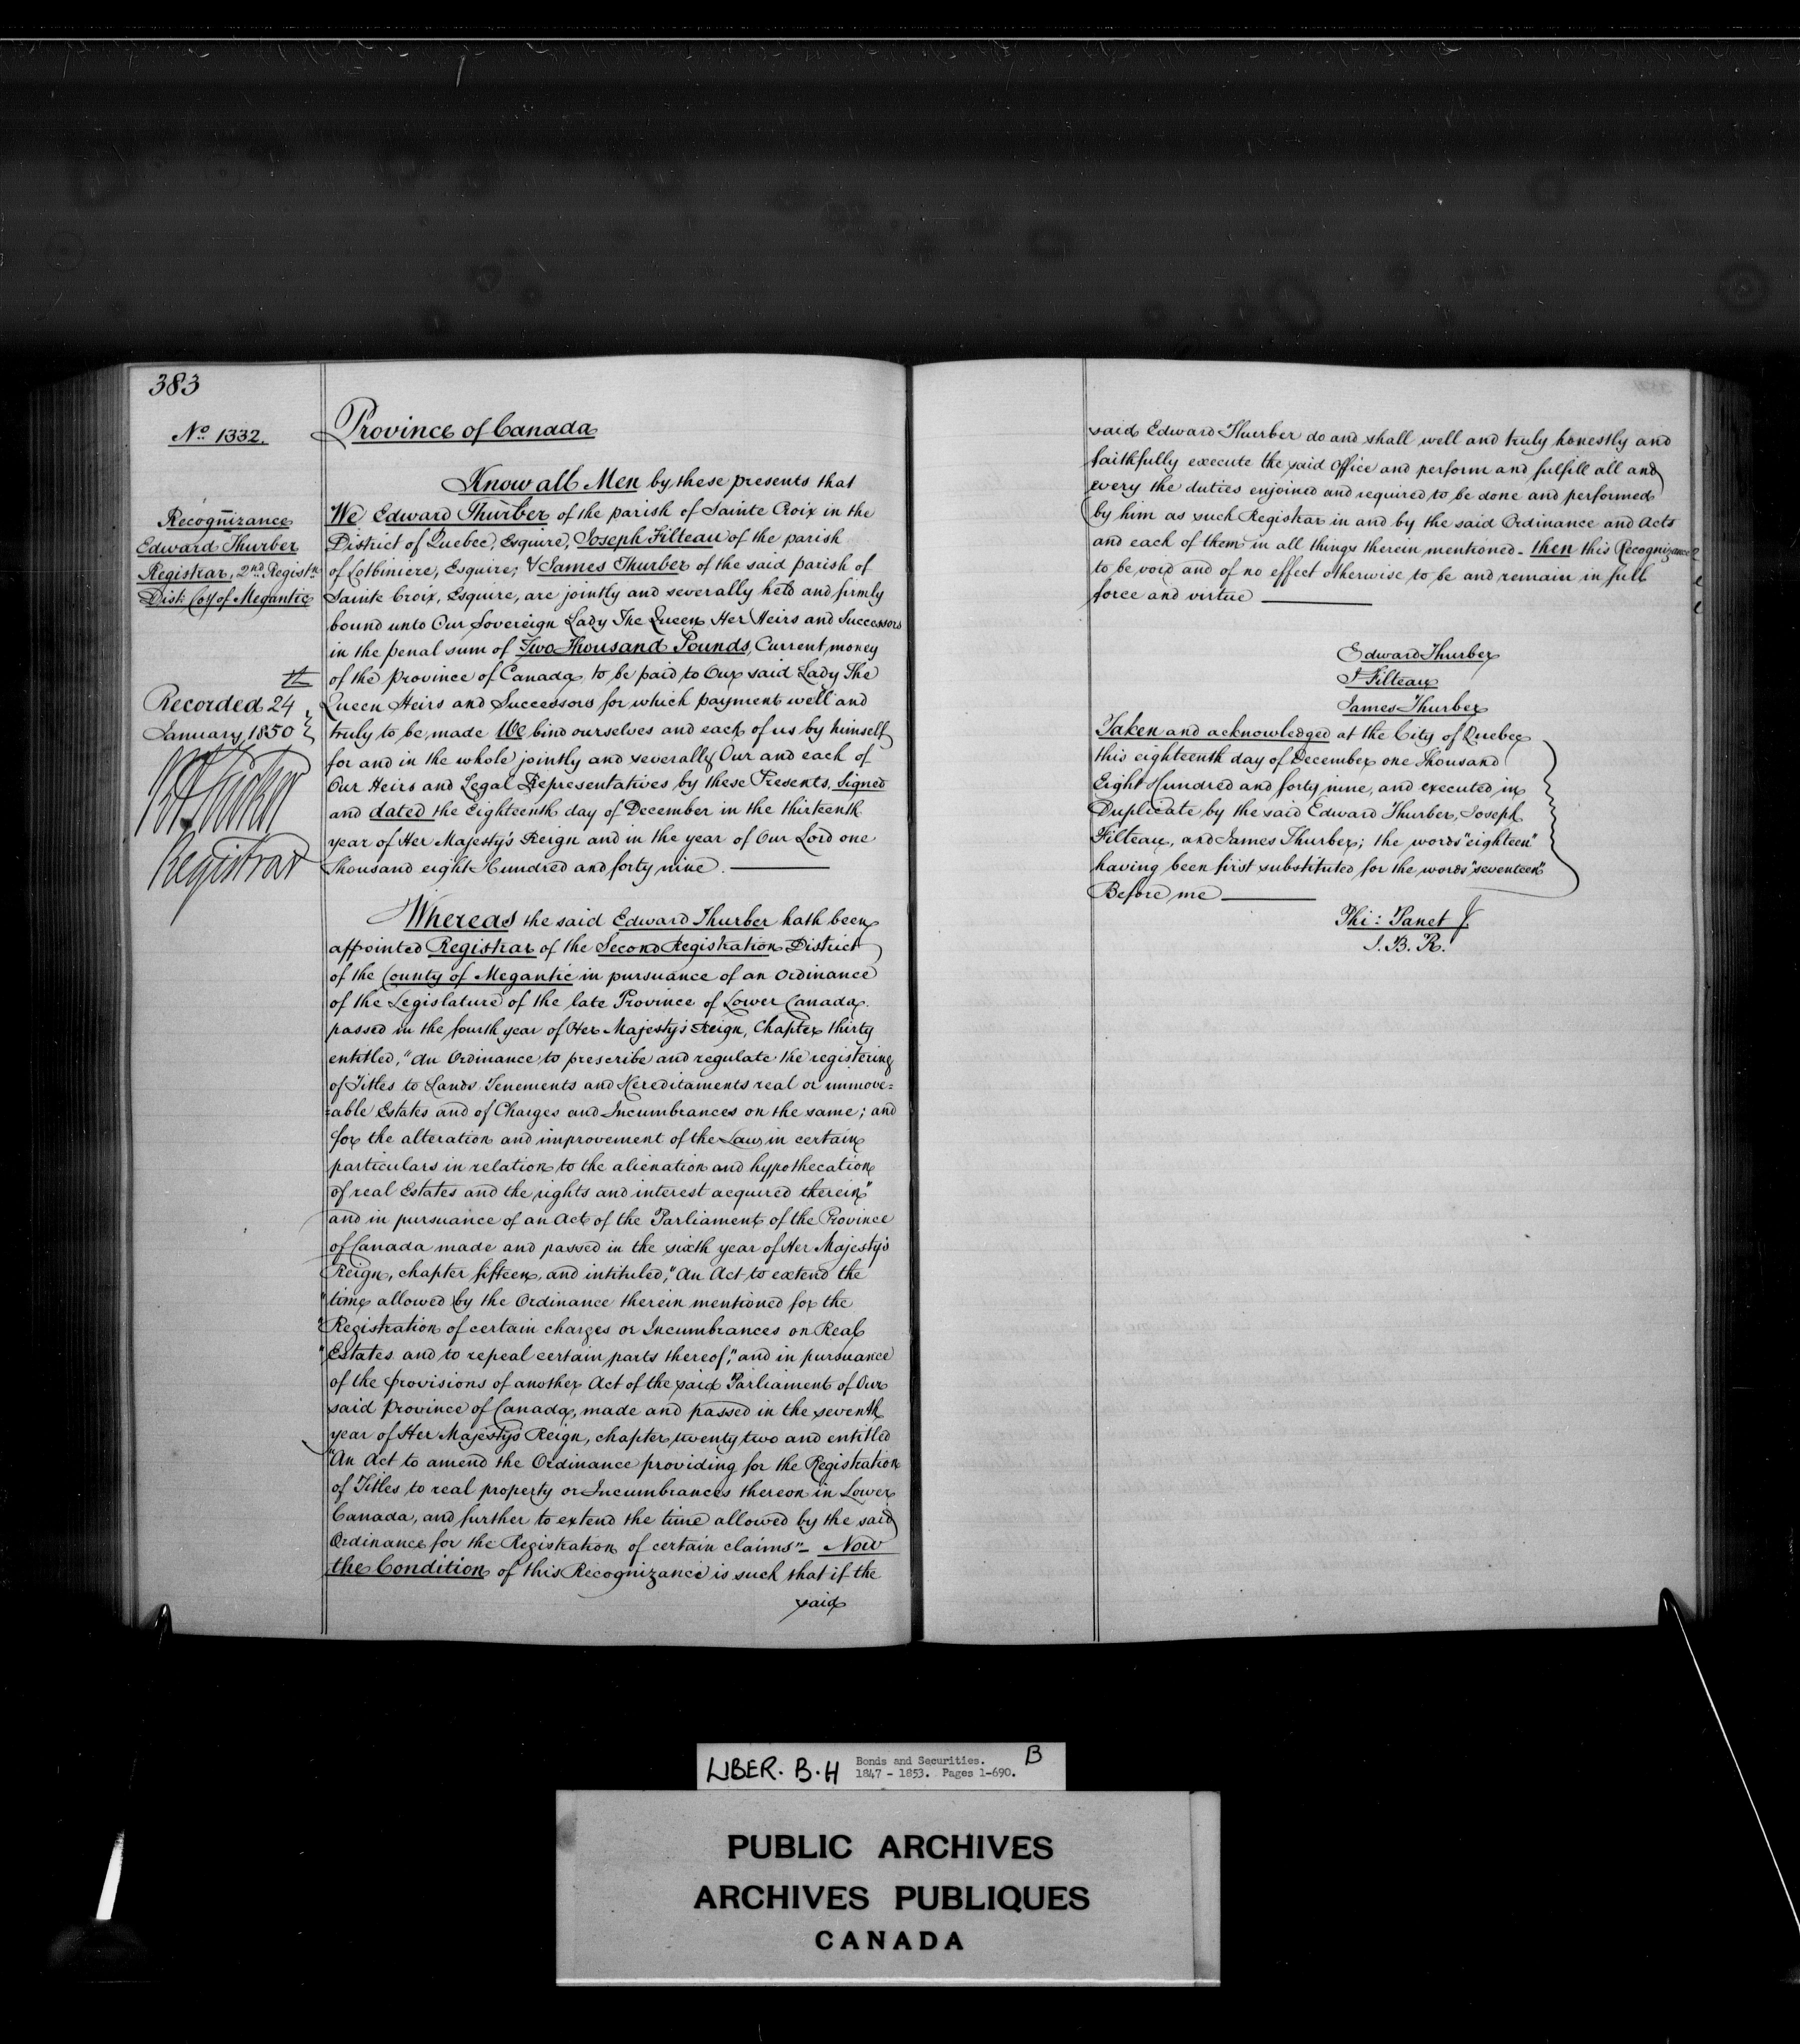 383
No. 1332.
Recognizance
Edward Thurber
Registrar, 2nd Registn
Dist: Coy of Megantic
Recorded 24th
January 1850
Registrar
Province of Canada
Know all Men by these presents that
We Edward Thurber of the parish of Sainte Croix in the
District of Quebec, Esquire, Joseph Filteau of the parish
of Lotbiniere, Esquire; & James Thurber of the said parish of
Sainte Croix, Esquire, are jointly and severally held and firmly
bound unto Our Sovereign Lady The Queen Her Heirs and Successors
in the penal sum of Two Thousand Pounds, Current money
of the province of Canada to be paid to Our said Lady The
Queen Heirs and Successors for which payment well and
truly to be made We bind ourselves and each of us by himself
for and in the whole jointly and severally Our and each of
Our Heirs and Legal Representatives by these Presents, Signed
and dated the Eighteenth day of December in the thirteenth
year of Her Majesty's Reign and in the year of Our Lord one
Thousand eight Hundred and forty nine.
Whereas the said Edward Thurber hath been
appointed Registrar of the Second Registration District
of the County of Megantic in pursuance of an Ordinance
of the Legislature of the late Province of Lower Canada
passed in the fourth year of Her Majesty's Reign, Chapter thirty
entitled, "An Ordinance to prescribe and regulate the registering
of Titles to Lands Tenements and Hereditaments real or immove=
=able Estates and of Charges and Incumbrances on the same; and
for the alteration and improvement of the Law in certain
particulars in relation to the alienation and hypothecation
of real Estates and the rights and interest acquired therein"
and in pursuance of an Act of the Parliament of the Province
of Canada made and passed in the sixth year of Her Majesty's
Reign, chapter fifteen, and intituled, "An Act to extend the
"time allowed by the Ordinance therein mentioned for the
"Registration of certain charges or Incumbrances on Real
"Estates and to repeal certain parts thereof," and in pursuance
of the provisions of another Act of the said Parliament of Our
said Province of Canada, made and passed in the seventh
year of Her Majesty's Reign, chapter twenty two and entitled
"An Act to amend the Ordinance providing for the Registration
of Titles to real property or Incumbrances thereon in Lower
Canada, and further to extend the time allowed by the said
Ordinance for the Registration of certain claims"- Now
the Condition of this Recognizance is such that if the
said
said Edward Thurber do and shall well and truly honestly and
faithfully execute the said Office and perform and fulfill all and
every the duties enjoined and required to be done and performed
by him as such Registrar in and by the said Ordinance and Acts
and each of them in all things therein mentioned - then this Recognizance
to be void and of no effect otherwise to be and remain in full
force and virtue
Edward Thurber
J Filteau
James Thurber
Taken and acknowledged at the City of Quebec
this eighteenth day of December one Thousand
Eight Hundred and forty nine, and executed in
Duplicate by the said Edward Thurber, Joseph
Filteau, and James Thurber; the words "eighteen"
having been first substituted for the words "seventeen"
Before me
Phi: Panet J.
J. B. R.
LIBER. B.H
Bonds and Securities.
1847 - 1853. Pages 1-690.
B
PUBLIC ARCHIVES
ARCHIVES PUBLIQUES
CANADA